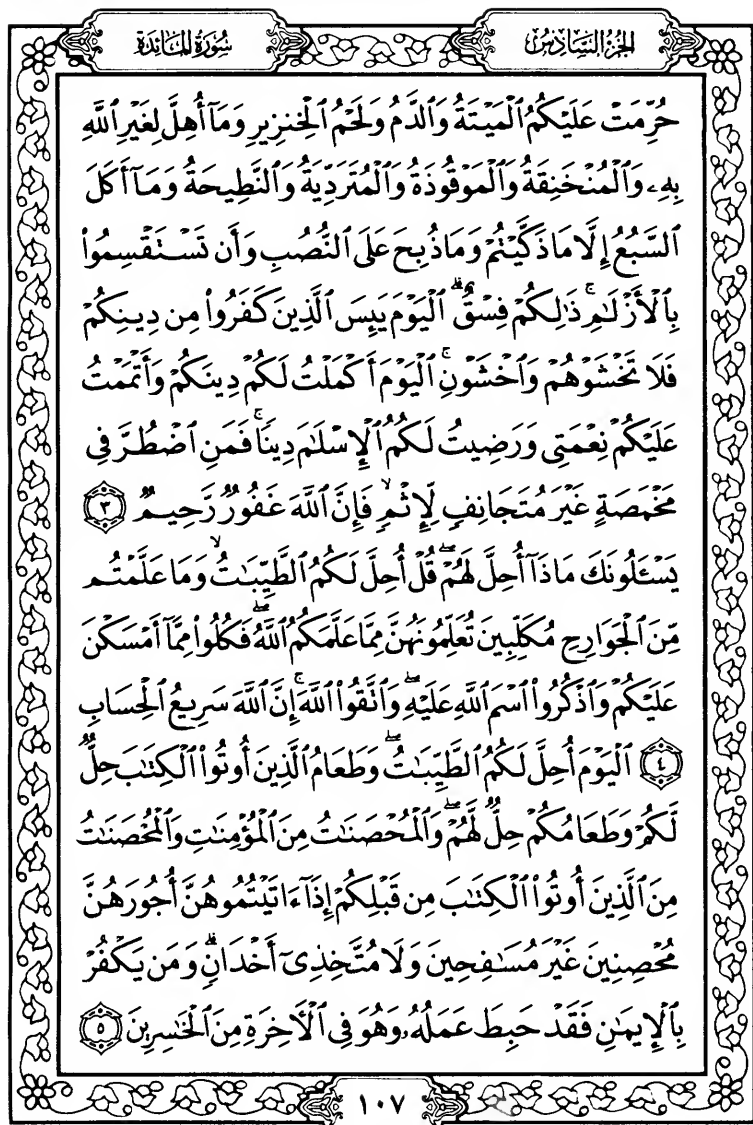 سُورَةُ المَائدَة
الجُزءُ السَّادِسُ
حُرِّمَتْ عَلَيْكُمُ ٱلْمَيْتَةُ وَٱلدَّمُ وَلَحْمُ ٱلْخِنزِيرِ وَمَآ أُهِلَّ لِغَيْرِ ٱللَّهِ
بِهِۦ وَٱلْمُنْخَنِقَةُ وَٱلْمَوْقُوذَةُ وَٱلْمُتَرَدِّيَةُ وَٱلنَّطِيحَةُ وَمَآ أَكَلَ
ٱلسَّبُعُ إِلَّا مَا ذَكَّيْتُمْ وَمَا ذُبِحَ عَلَى ٱلنُّصُبِ وَأَن تَسْتَقْسِمُوا۟
بِٱلْأَزْلَـٰمِ ۚ ذَٰلِكُمْ فِسْقٌ ۗ ٱلْيَوْمَ يَئِسَ ٱلَّذِينَ كَفَرُوا۟ مِن دِينِكُمْ
فَلَا تَخْشَوْهُمْ وَٱخْشَوْنِ ۚ ٱلْيَوْمَ أَكْمَلْتُ لَكُمْ دِينَكُمْ وَأَتْمَمْتُ
عَلَيْكُمْ نِعْمَتِى وَرَضِيتُ لَكُمُ ٱلْإِسْلَـٰمَ دِينًا ۚ فَمَنِ ٱضْطُرَّ فِى
مَخْمَصَةٍ غَيْرَ مُتَجَانِفٍ لِّإِثْمٍ ۙ فَإِنَّ ٱللَّهَ غَفُورٌ رَّحِيمٌ ٣
يَسْـَٔلُونَكَ مَاذَآ أُحِلَّ لَهُمْ ۖ قُلْ أُحِلَّ لَكُمُ ٱلطَّيِّبَـٰتُ ۙ وَمَا عَلَّمْتُم
مِّنَ ٱلْجَوَارِحِ مُكَلِّبِينَ تُعَلِّمُونَهُنَّ مِمَّا عَلَّمَكُمُ ٱللَّهُ ۖ فَكُلُوا۟ مِمَّآ أَمْسَكْنَ
عَلَيْكُمْ وَٱذْكُرُوا۟ ٱسْمَ ٱللَّهِ عَلَيْهِ ۖ وَٱتَّقُوا۟ ٱللَّهَ ۚ إِنَّ ٱللَّهَ سَرِيعُ ٱلْحِسَابِ
٤ ٱلْيَوْمَ أُحِلَّ لَكُمُ ٱلطَّيِّبَـٰتُ ۖ وَطَعَامُ ٱلَّذِينَ أُوتُوا۟ ٱلْكِتَـٰبَ حِلٌّ
لَّكُمْ وَطَعَامُكُمْ حِلٌّ لَّهُمْ ۖ وَٱلْمُحْصَنَـٰتُ مِنَ ٱلْمُؤْمِنَـٰتِ وَٱلْمُحْصَنَـٰتُ
مِنَ ٱلَّذِينَ أُوتُوا۟ ٱلْكِتَـٰبَ مِن قَبْلِكُمْ إِذَآ ءَاتَيْتُمُوهُنَّ أُجُورَهُنَّ
مُحْصِنِينَ غَيْرَ مُسَـٰفِحِينَ وَلَا مُتَّخِذِىٓ أَخْدَانٍ ۗ وَمَن يَكْفُرْ
بِٱلْإِيمَـٰنِ فَقَدْ حَبِطَ عَمَلُهُۥ وَهُوَ فِى ٱلْـَٔاخِرَةِ مِنَ ٱلْخَـٰسِرِينَ ٥
١٠٧